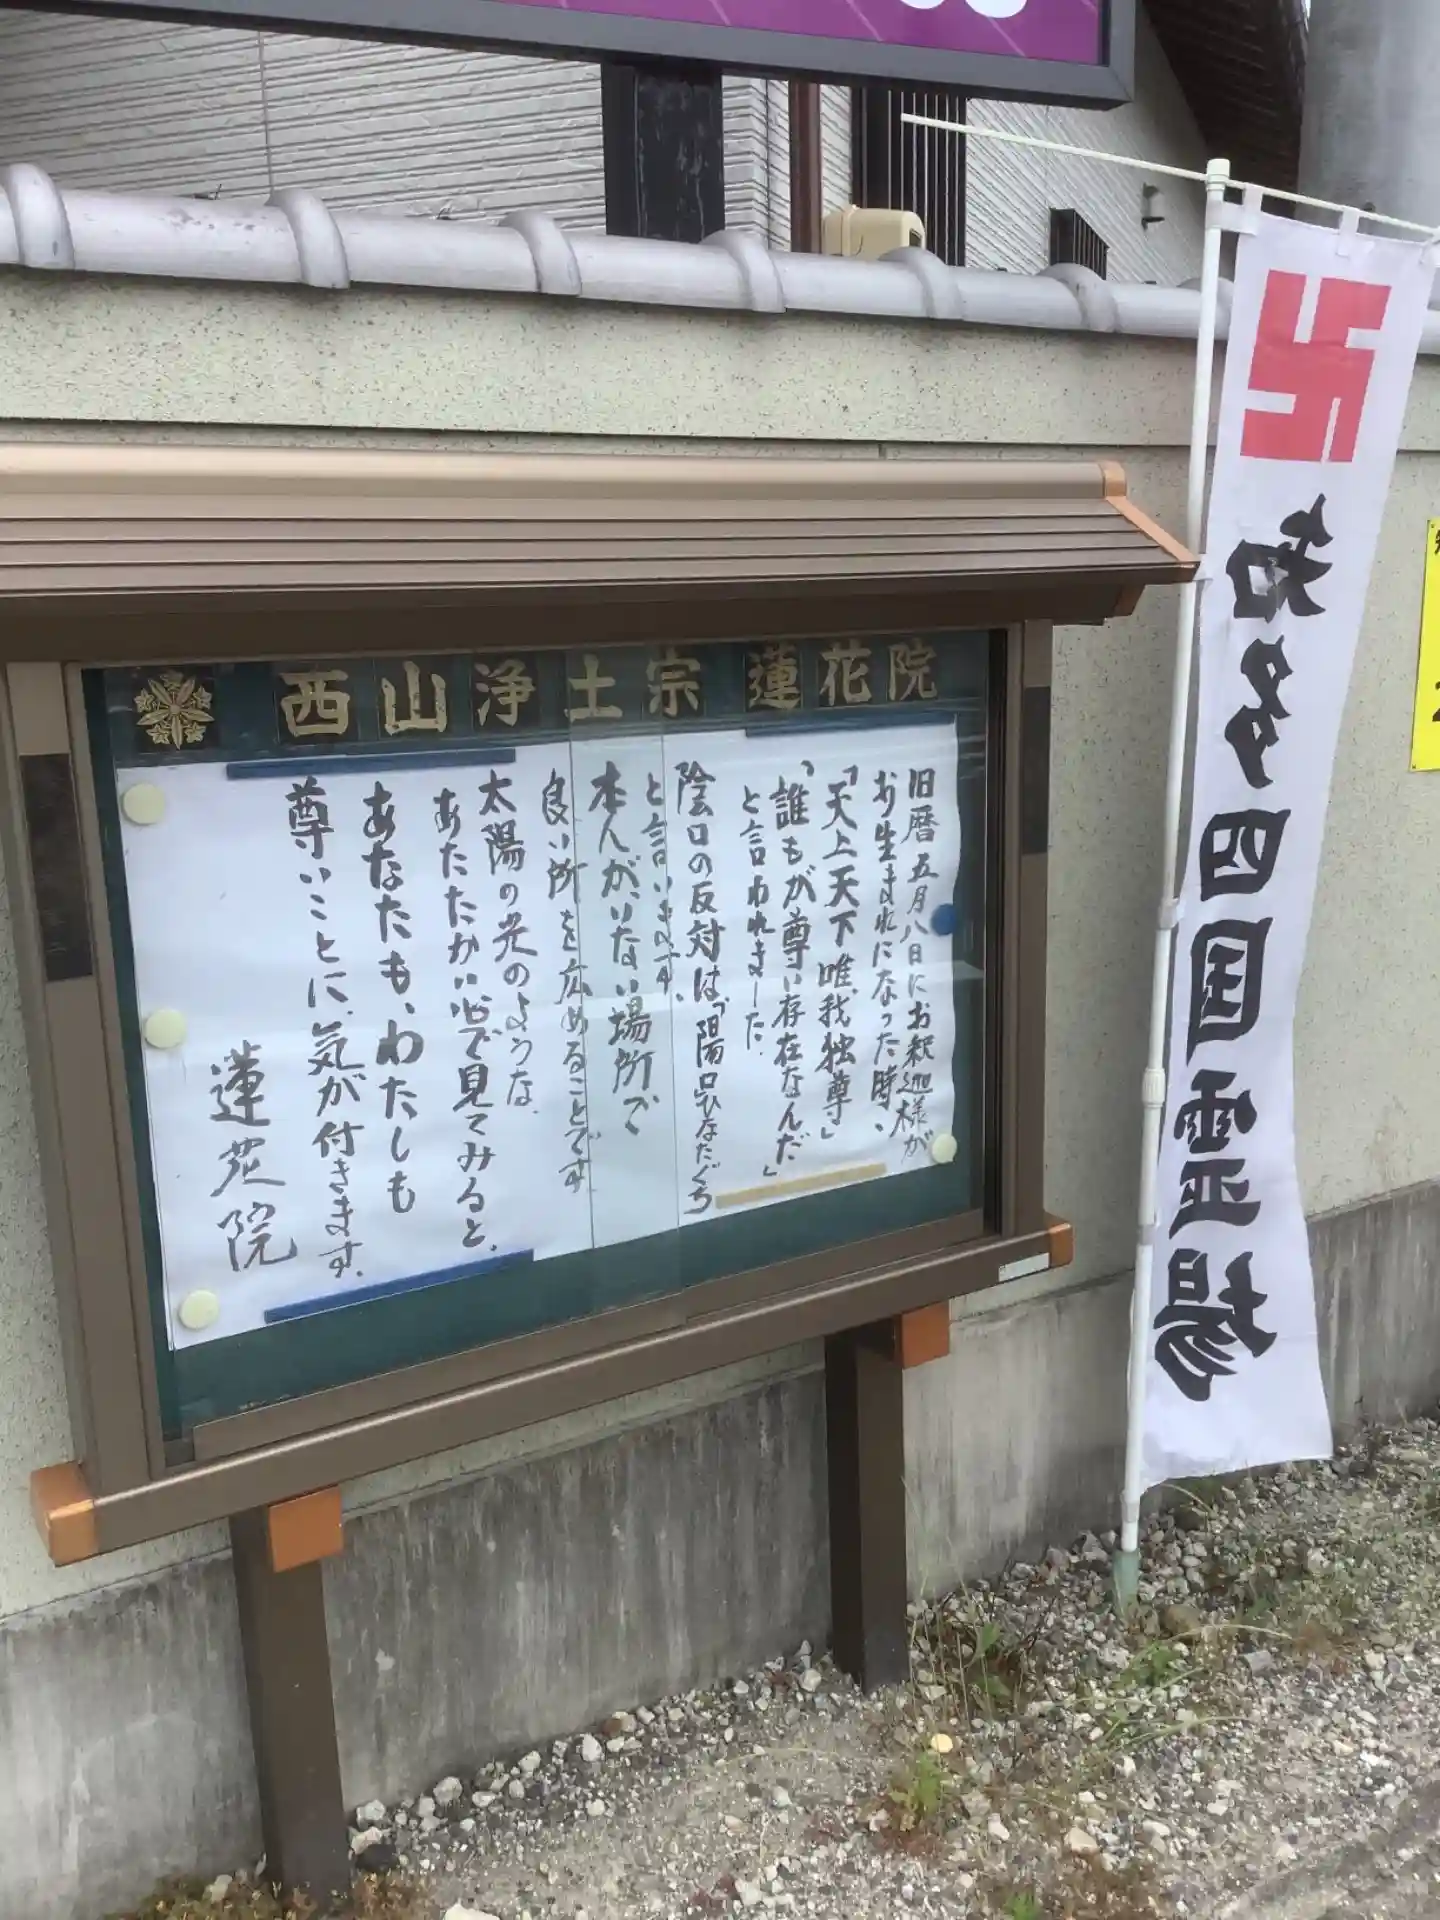 西山浄土宗 蓮花院
旧暦五月八日にお釈迦様が
お生まれになった時、
「天上天下唯我独尊」
「誰もが尊い存在なんだ」
と言われました。
陰口の反対は「陽口ひなたぐち
と言います。
本人がいない場所で
良い所を広めることです
太陽の光のような、
あたたかい心で見てみると、
あなたも、わたしも
尊いことに、気が付きます。
蓮花院
卍
知多四国霊場